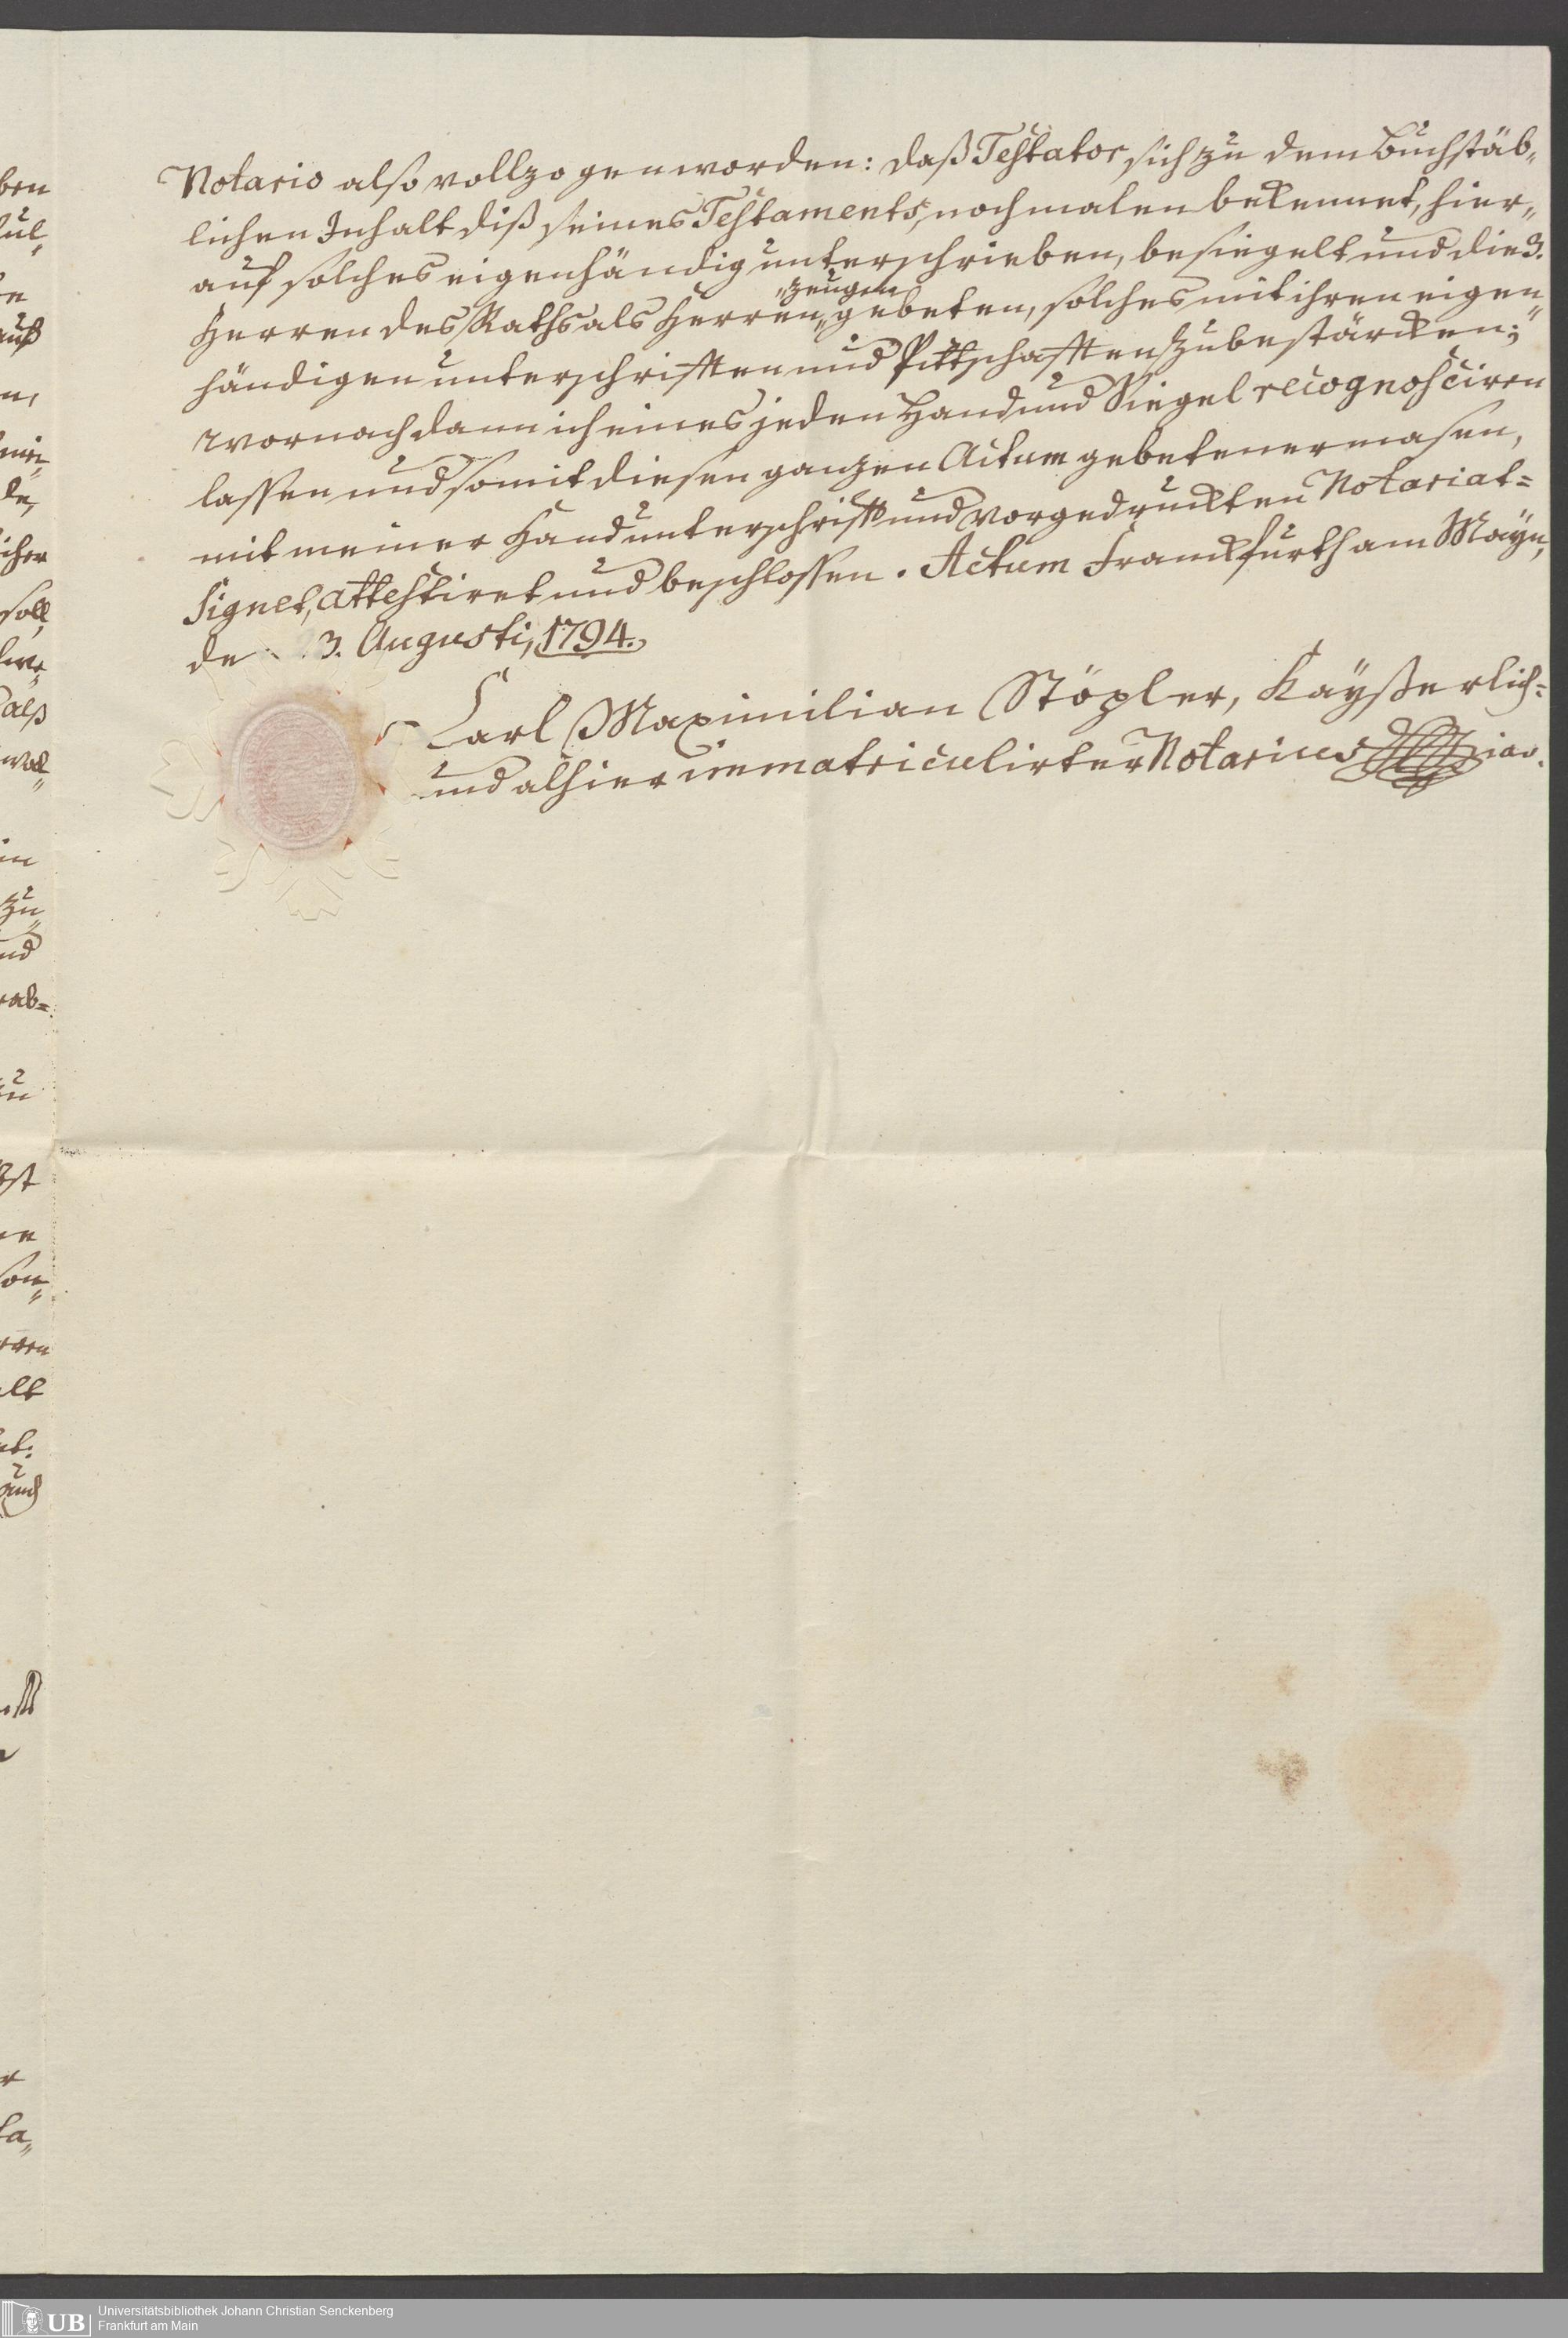 Notario also vollzogen worden: daß Testator sich zu dem Buchstäb„
lichen Inhalt diß seines Testaments, nochmalen bekennet, hier„
auf solches eigenhändig unterschrieben, besiegelt und die 3.
„Zeugen
Herren des Raths als Herren „ gebeten, solches mit ihren eigen„
händigen unterschrifften und Pittschafften zu bestärcken;
wornach dann ich eines jeden Hand und Siegel recognosciren
lassen und somit diesen ganzen Actum gebetenermasen,
mit meiner Handunterschrifft und vorgedruckten Notariat=
Signet, attestiret und beschlossen. Actum Franckfurth am Mayn,
de 3. Augusti, 1794.
Carl Maximilian Stözler, Kayßerlich=
und alhier immatriculirter Notarius
ben
auß
de,
icher
soll
alß
in
zu„
nd
ab=
zu
son„
Universitätsbibliothek Johann Christian Senckenberg
Frankfurt am Main
UB